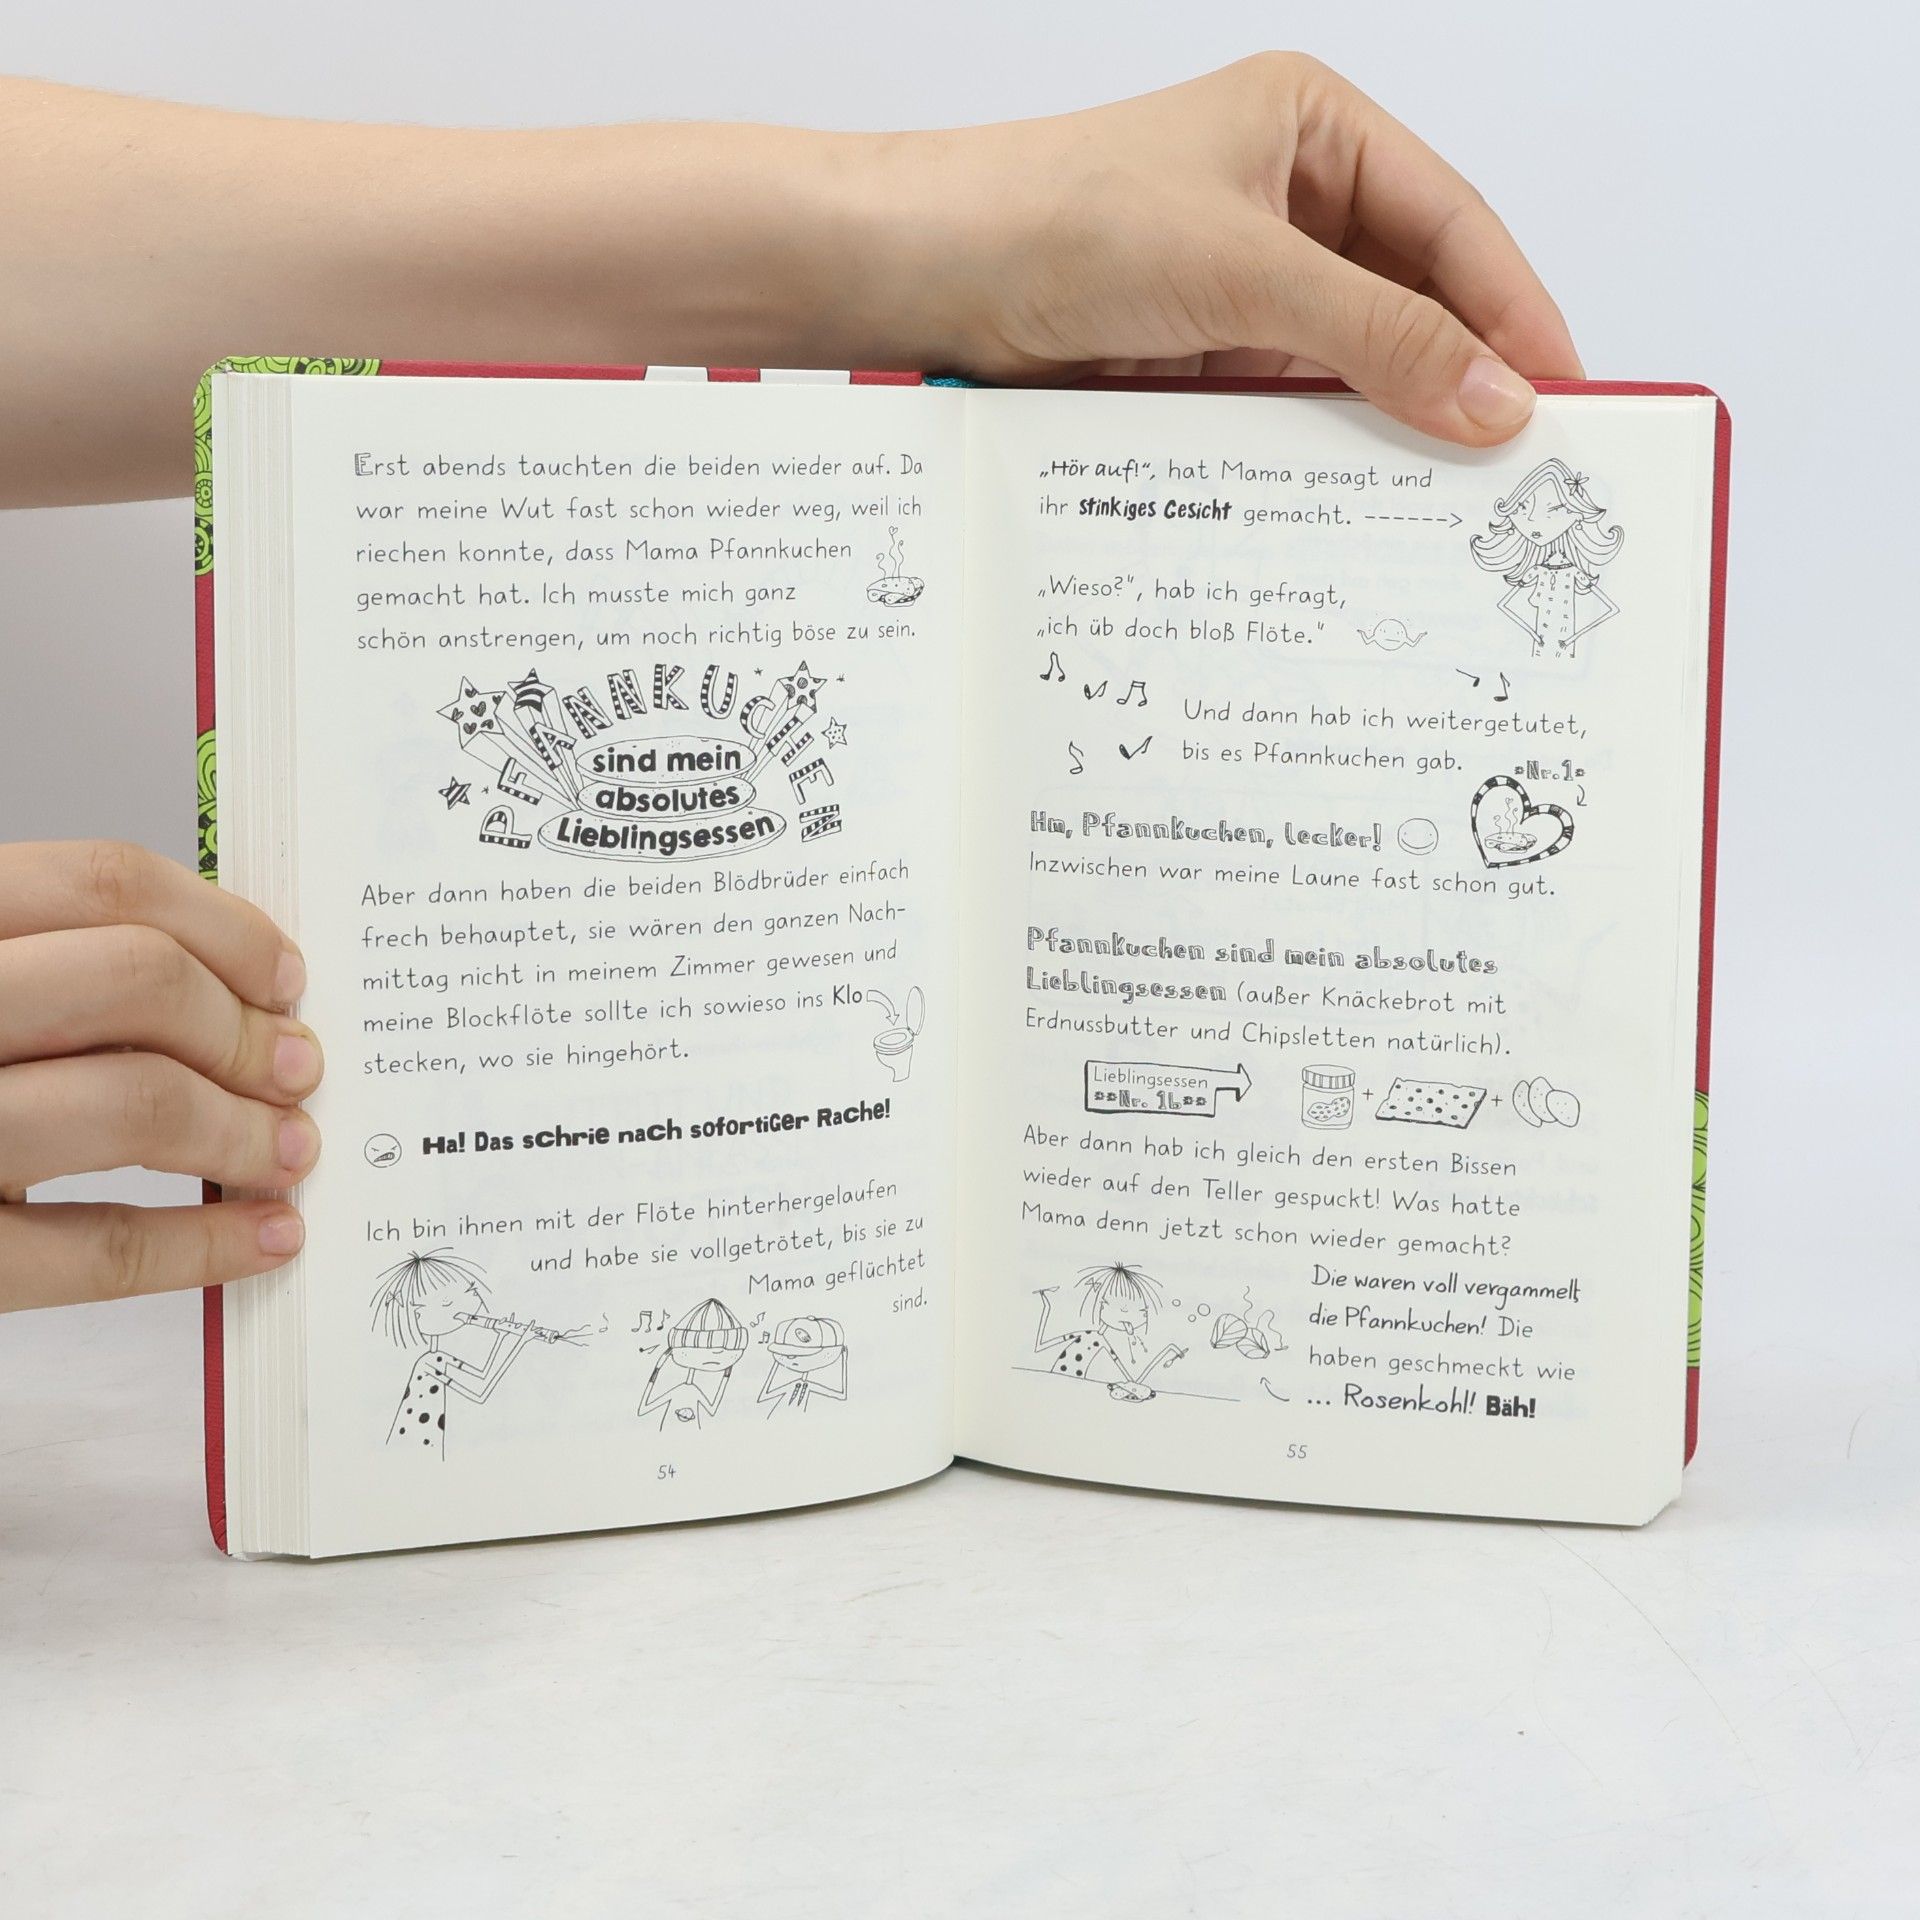 Erst abends tauchten die beiden wieder auf. Da
war meine Wut fast schon wieder weg, weil ich
riechen konnte, dass Mama Pfannkuchen
gemacht hat. Ich musste mich ganz
schön anstrengen, um noch richtig böse zu sein.
PFANNKUCHEN
sind mein
absolutes
Lieblingsessen
Aber dann haben die beiden Blödbrüder einfach
frech behauptet, sie wären den ganzen Nach-
mittag nicht in meinem Zimmer gewesen und
meine Blockflöte sollte ich sowieso ins Klo
stecken, wo sie hingehört.
Ha! Das schrie nach sofortiger Rache!
Ich bin ihnen mit der Flöte hinterhergelaufen
und habe sie vollgetrötet, bis sie zu
Mama geflüchtet
sind.
54
„Hör auf!“, hat Mama gesagt und
ihr stinkiges Gesicht gemacht. ------>
„Wieso?“, hab ich gefragt,
„ich üb doch bloß Flöte.“
Und dann hab ich weitergetutet,
bis es Pfannkuchen gab.
Nr. 1
Hm, Pfannkuchen, lecker!
Inzwischen war meine Laune fast schon gut.
Pfannkuchen sind mein absolutes
Lieblingsessen (außer Knäckebrot mit
Erdnussbutter und Chipsletten natürlich).
Lieblingsessen
Nr. 1b
+ +
Aber dann hab ich gleich den ersten Bissen
wieder auf den Teller gespuckt! Was hatte
Mama denn jetzt schon wieder gemacht?
Die waren voll vergammelt,
die Pfannkuchen! Die
haben geschmeckt wie
... Rosenkohl! Bäh!
55